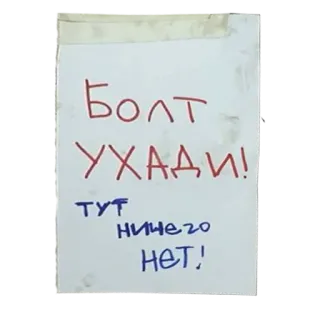 БОЛТ
УХАДИ!
ТУТ
НИЧЕГО
НЕТ!